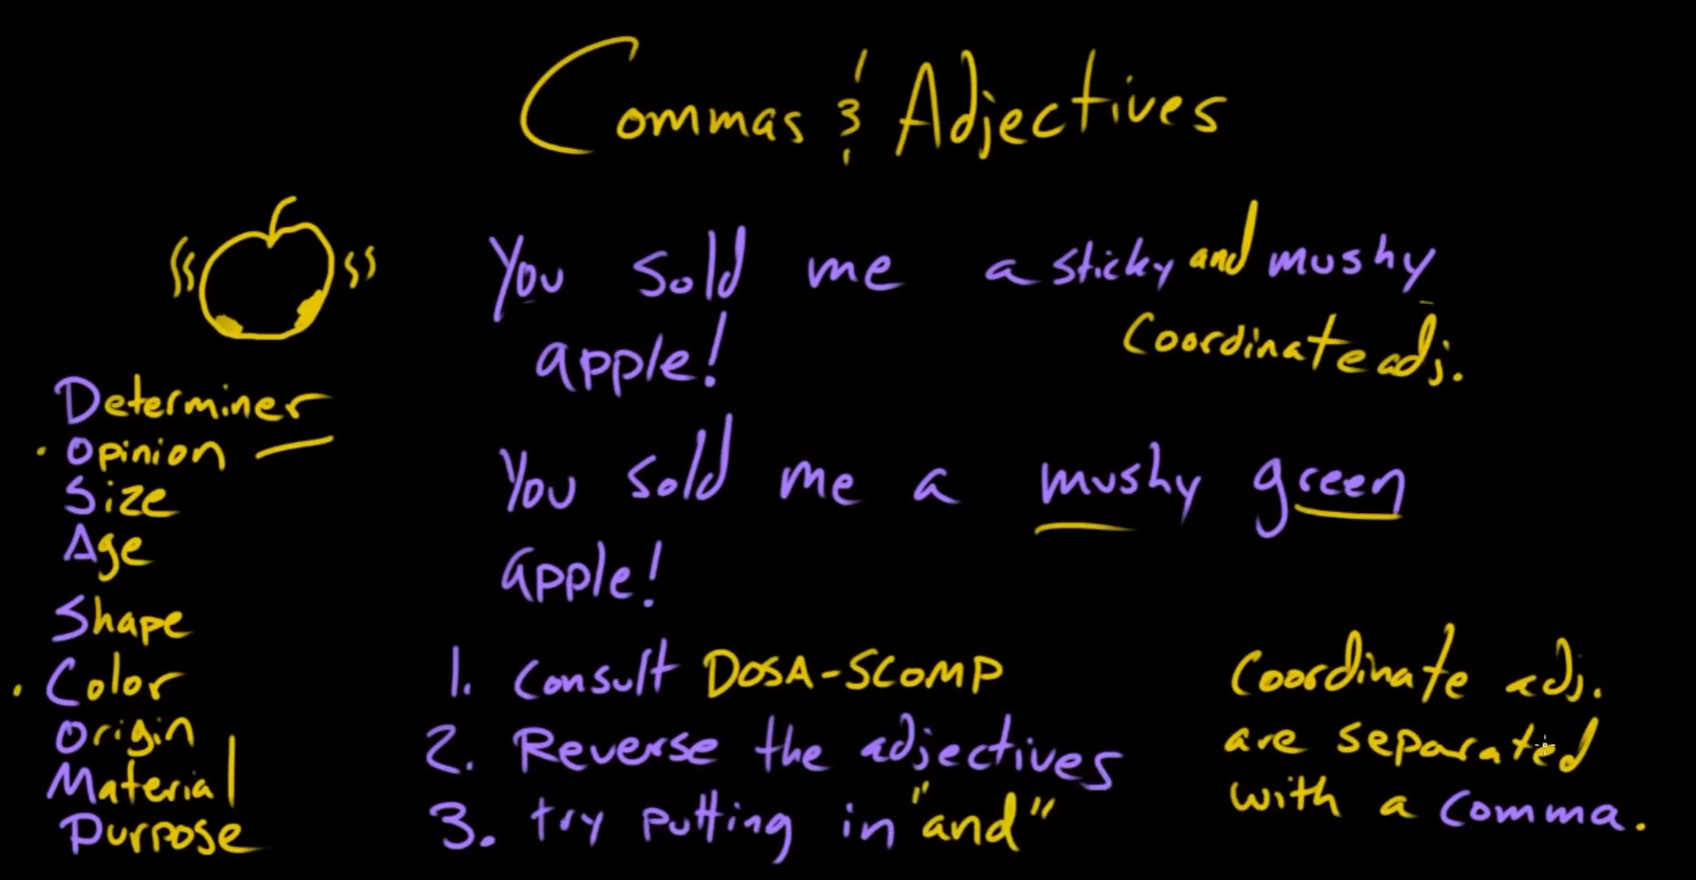 Commas & Adjectives
You sold me a sticky and mushy
apple!
Coordinate adj.
You sold me a mushy green
apple!
Determiner
Opinion
Size
Age
Shape
Color
Origin
Material
Purpose
1. Consult DOSA-SCOMP
2. Reverse the adjectives
3. try putting in "and"
Coordinate adj.
are separated
with a comma.